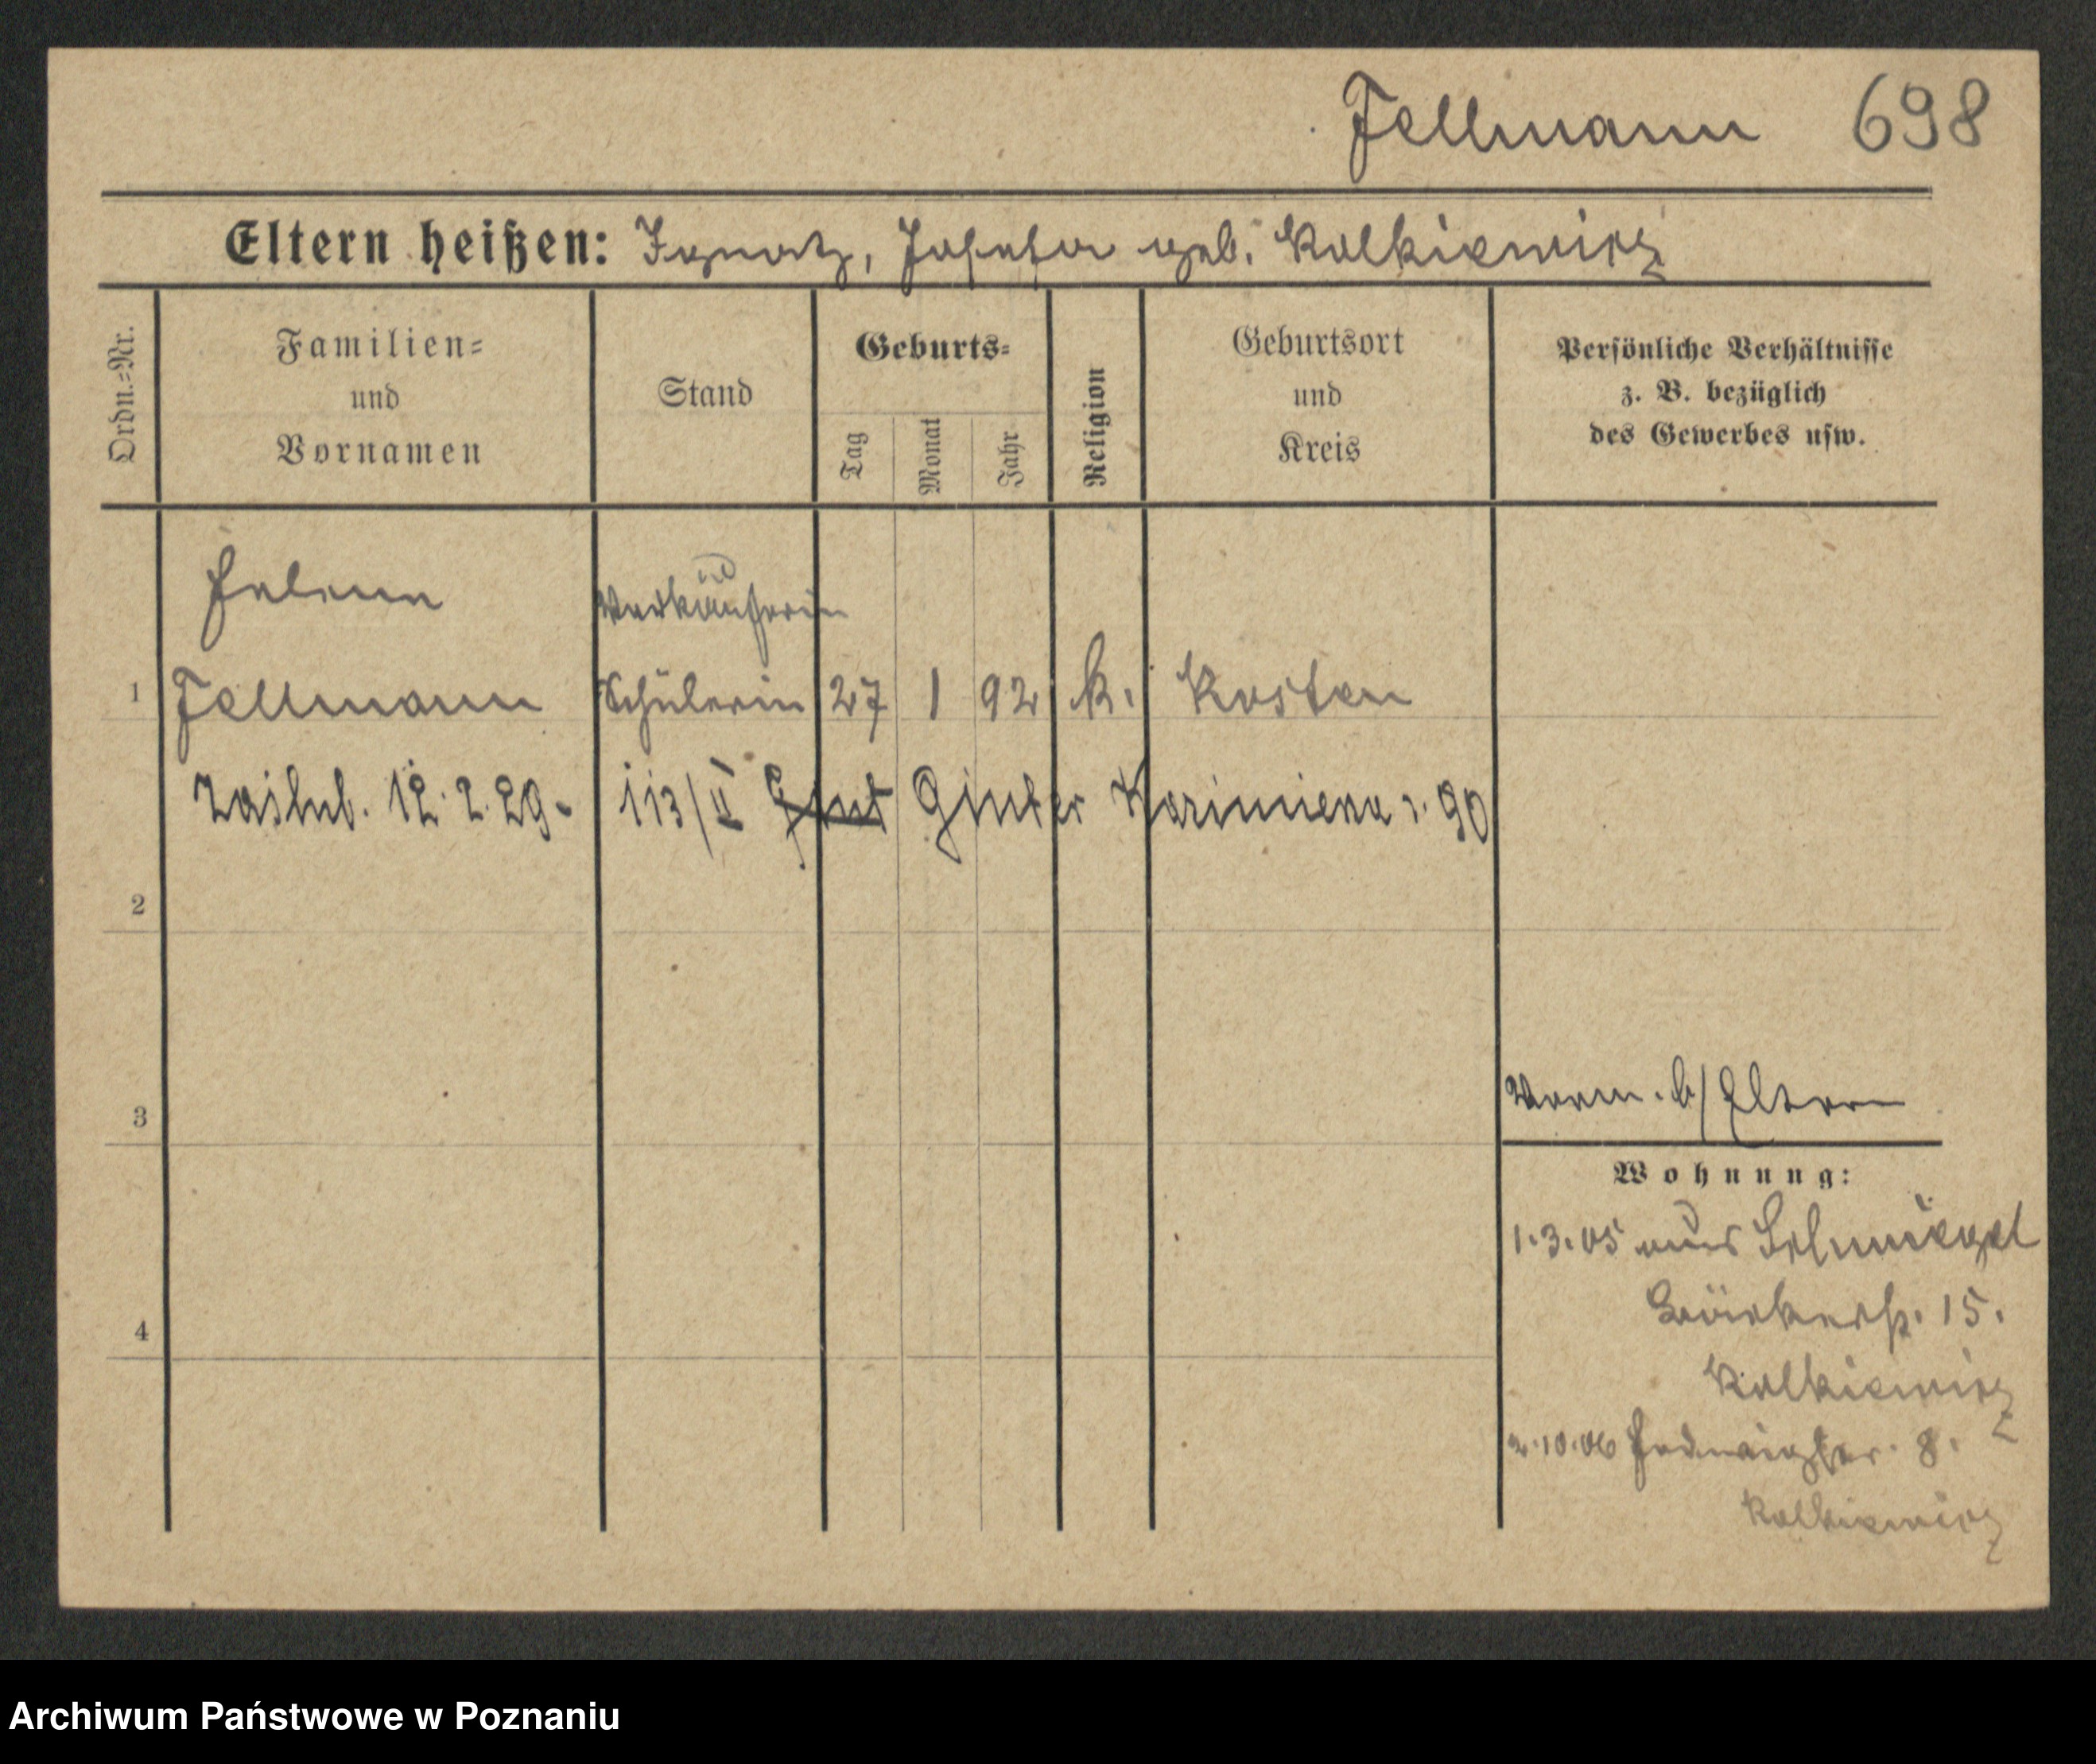 Fellmann 698
Eltern heißen: Ignatz, Josefa geb. Kolkiewicz
Ordn.=Nr.
Familien=
und
Vornamen
Stand
Geburts=
Tag
Monat
Jahr
Religion
Geburtsort
und
Kreis
Persönliche Verhältnisse
z. B. bezüglich
des Gewerbes usw.
Helene Verkäuferin
1 Fellmann Schülerin 27 1 92 k. Kosten
Zaślub. 12.2.29- 113/II Ginter Kazimierz r. 90
2
3
Vorm. b/ Eltern
Wohnung:
1.3.05 aus Schmiegel
Bäckerstr. 15.
4
Kolkiewicz
2.10.06 Hedwigstr. 8.
Kolkiewicz
Archiwum Państwowe w Poznaniu